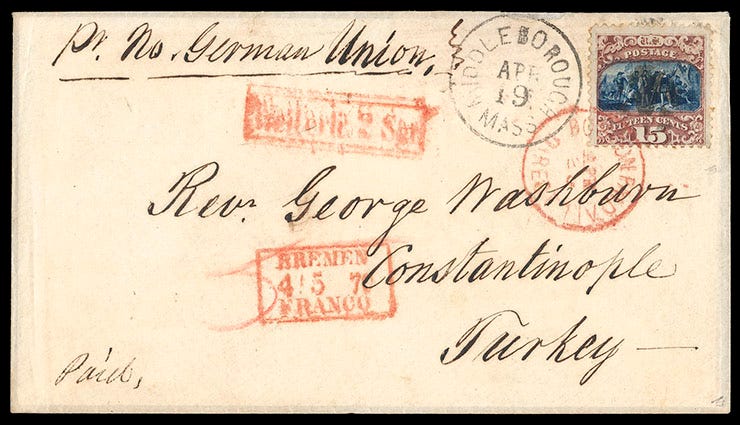 Pr. No. German Union,
MIDDLEBOROUGH
APR
19
MASS
U.S.
POSTAGE
FIFTEEN CENTS
15
Rev. George Washburn
Constantinople
Turkey
BREMEN
4 5 7
FRANCO
Paid,